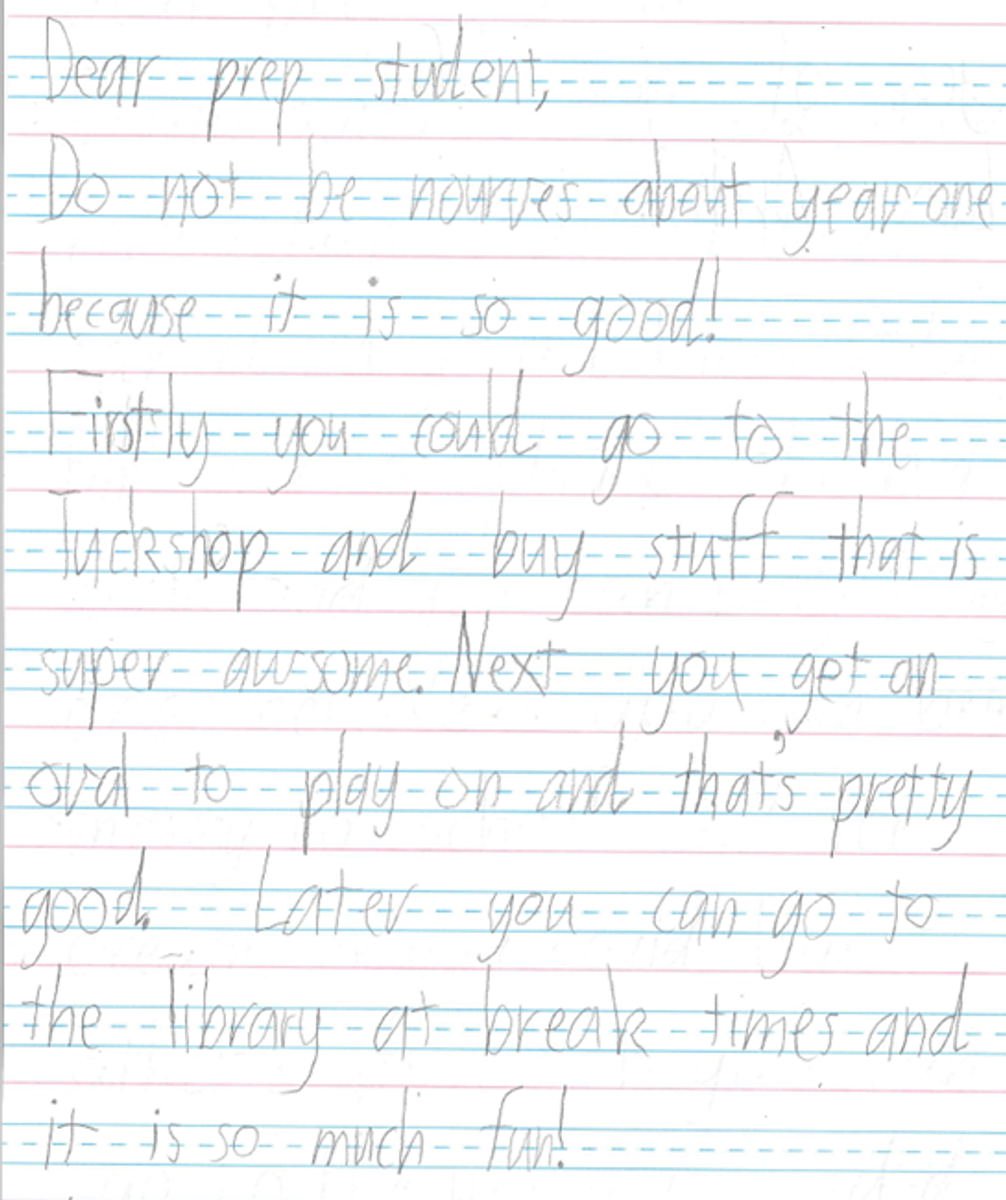 Dear prep student,
Do not be nourves about year one
because it is so good!
Firstly you could go to the
Tuckshop and buy stuff that is
super awsome. Next you get an
oval to play on and that's pretty
good. Later you can go to
the library at break times and
it is so much fun!